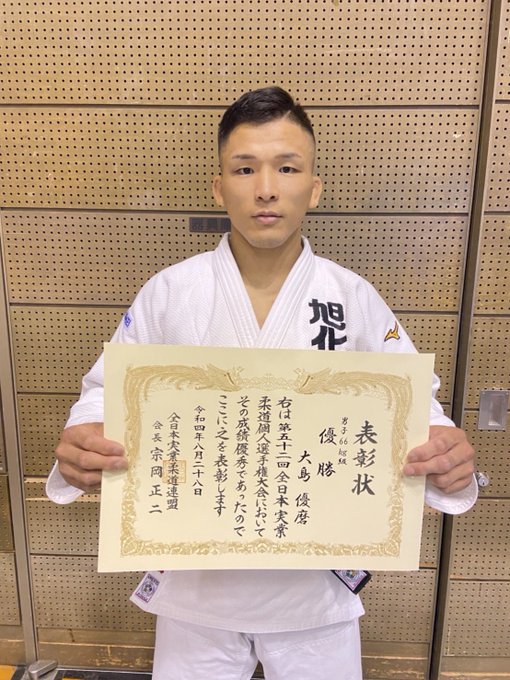 旭化
表彰状
男子66kg級
優勝
大島優磨
右は第五十二回全日本実業
柔道個人選手権大会において
その成績優秀であったので
ここに之を表彰します
令和四年八月二十八日
全日本実業柔道連盟
会長 宗岡正二